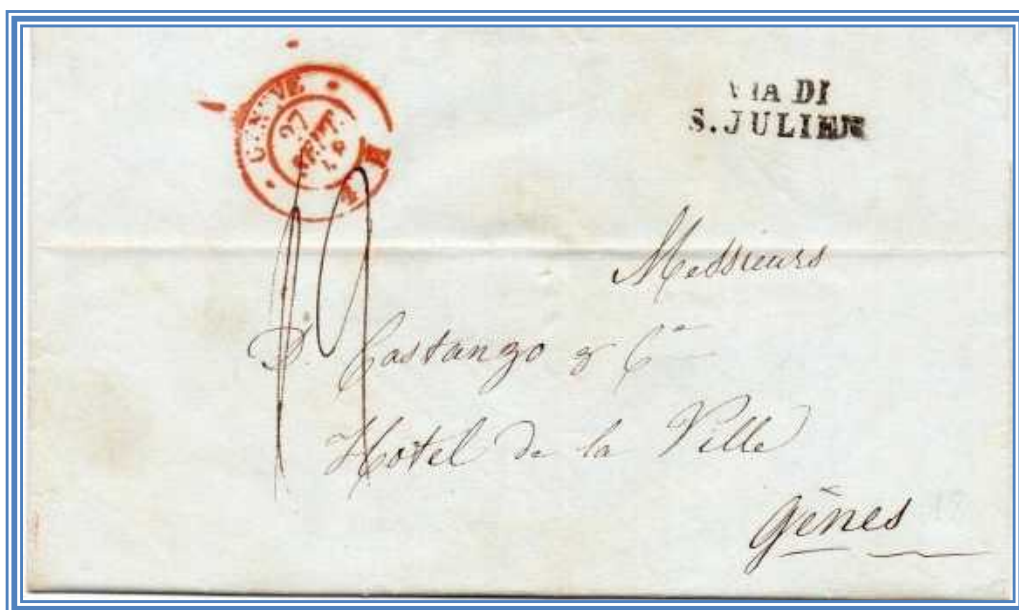 GENEVE
27
SEPT.
VIA DI
S. JULIEN
19
Messieurs
D. Castango & Cie
Hôtel de la Ville
Gênes